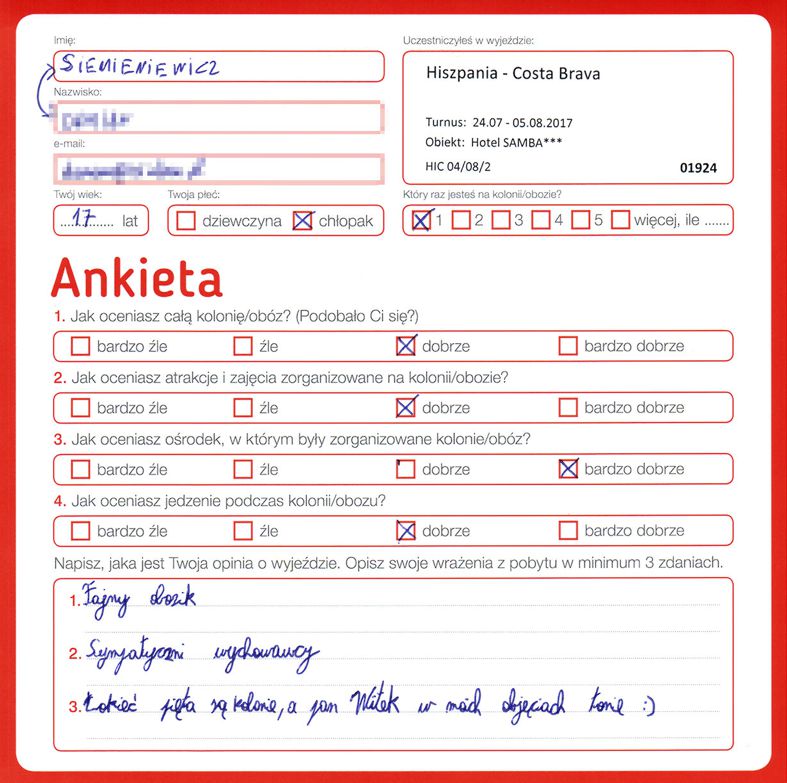 Imię:
SIEMIENIEWICZ
Nazwisko:
e-mail:
Twój wiek:
17 lat
Twoja płeć:
dziewczyna chłopak
Uczestniczyłeś w wyjeździe:
Hiszpania - Costa Brava
Turnus: 24.07 - 05.08.2017
Obiekt: Hotel SAMBA***
HIC 04/08/2 01924
Który raz jesteś na kolonii/obozie?
1 2 3 4 5 więcej, ile .......
Ankieta
1. Jak oceniasz całą kolonię/obóz? (Podobało Ci się?)
bardzo źle źle dobrze bardzo dobrze
2. Jak oceniasz atrakcje i zajęcia zorganizowane na kolonii/obozie?
bardzo źle źle dobrze bardzo dobrze
3. Jak oceniasz ośrodek, w którym były zorganizowane kolonie/obóz?
bardzo źle źle dobrze bardzo dobrze
4. Jak oceniasz jedzenie podczas kolonii/obozu?
bardzo źle źle dobrze bardzo dobrze
Napisz, jaka jest Twoja opinia o wyjeździe. Opisz swoje wrażenia z pobytu w minimum 3 zdaniach.
1. Fajny obozik
2. Sympatyczni wychowawcy
3. Łokieć pięta są kolonie, a pan Witek w moich objęciach tonie :)